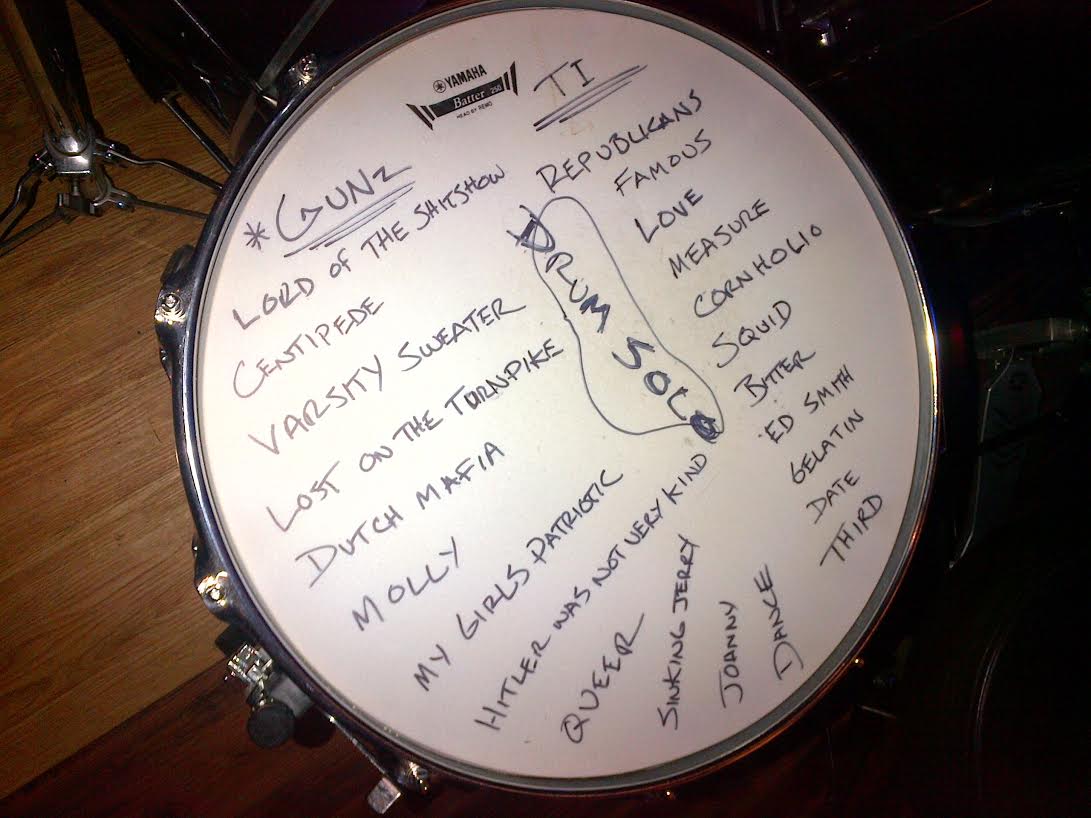 YAMAHA
Batter 250
HEAD BY REMO
*GUNZ
LORD OF THE SHITSHOW
CENTIPEDE
VARSITY SWEATER
LOST ON THE TURNPIKE
DUTCH MAFIA
MOLLY
MY GIRLS PATRIOTIC
HITLER WAS NOT VERY KIND
QUEER
SINKING JERRY
JOANNY
DANCE
DRUM SOLO
TI
REPUBLICANS
FAMOUS
LOVE
MEASURE
CORNHOLIO
SQUID
BITTER
ED SMITH
GELATIN
DATE
THIRD